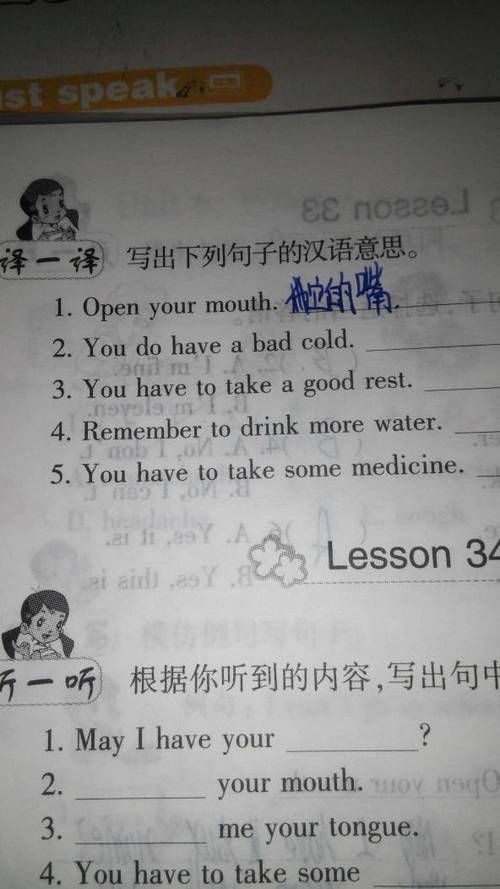 ust speak
译一译 写出下列句子的汉语意思。
1. Open your mouth. 的嘴.
2. You do have a bad cold.
3. You have to take a good rest.
4. Remember to drink more water.
5. You have to take some medicine.
Lesson 34
听一听 根据你听到的内容,写出句中
1. May I have your ________?
2. ________ your mouth.
3. ________ me your tongue.
4. You have to take some